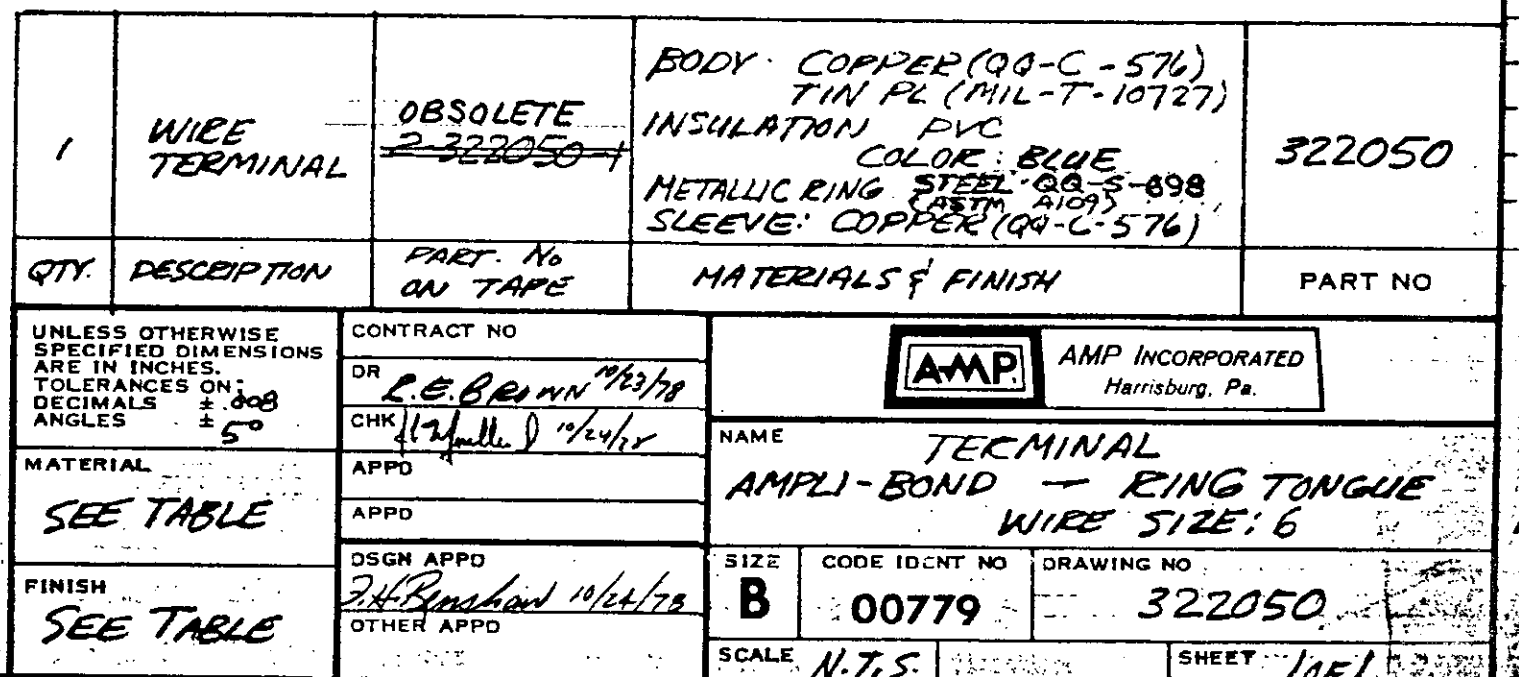 1
WIRE
TERMINAL
OBSOLETE
2-322050-1
BODY: COPPER (QQ-C-576)
TIN PL (MIL-T-10727)
INSULATION PVC
COLOR: BLUE
METALLIC RING STEEL-QQ-S-698
(ASTM A109)
SLEEVE: COPPER (QQ-C-576)
322050
QTY.
DESCRIPTION
PART. No
ON TAPE
MATERIALS & FINISH
PART NO
UNLESS OTHERWISE
SPECIFIED DIMENSIONS
ARE IN INCHES.
TOLERANCES ON:
DECIMALS ± .008
ANGLES ± 5°
MATERIAL
SEE TABLE
FINISH
SEE TABLE
CONTRACT NO
DR R.E. BROWN 10/23/78
CHK 10/24/78
APPD
APPD
DSGN APPD
F.H. Renshaw 10/24/78
OTHER APPD
AMP
AMP INCORPORATED
Harrisburg, Pa.
NAME
TERMINAL
AMPLI-BOND — RING TONGUE
WIRE SIZE: 6
SIZE
B
CODE IDENT NO
00779
DRAWING NO
322050
SCALE N.T.S.
SHEET 1 OF 1